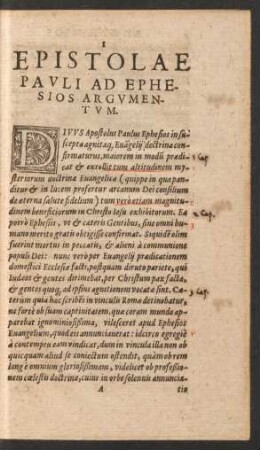 1
EPISTOLAE
PAVLI AD EPHE-
SIOS ARGVMEN-
TVM.
DIVVS Apostolus Paulus Ephesios in su-
scepta agnitaq; Euãgelij doctrina con-
firmaturus, maiorem in modũ prædi-
cat & extollit tum altitudinem my-
steriorum doctrinæ Euangelicæ (quippe in qua pan-
ditur & in lucem profertur arcanum Dei consilium
de æterna salute fidelium) tum verò etiam magnitu-
dinem beneficiorum in Christo Iesu exhibitorum. Ea
porrò Ephesijs, vt & cæteris Gentibus, sine omni hu-
mano merito gratis obtigisse confirmat. Siquidẽ olim
fuerint mortui in peccatis, & alieni à communione
populi Dei: nunc verò per Euangelij prædicationem
domestici Ecclesiæ facti, postquam diruto pariete, qui
Iudæos & gentes dirimebat, per Christum pax facta,
& gentes quoq; ad ipsius agnitionem vocatæ sint. Cæ-
terum quia hæc scribẽs in vinculis Romæ detinebatur,
ne fortè ob suam captiuitatem, quæ coram mundo ap-
parebat ignominiosissima, vilesceret apud Ephesios
Euangelium, quod eis annunciauerat: idcirco egregiè
à contemptu eam vindicat, dum in vincula illa non ab
quicquam aliud se coniectum ostendit, quàm ob rem
longè omnium gloriosissimam, videlicet ob professio-
nem cælestis doctrinæ, cuius in orbe solennis annuncia-
A
tio
Cap.
Cap.
Cap.